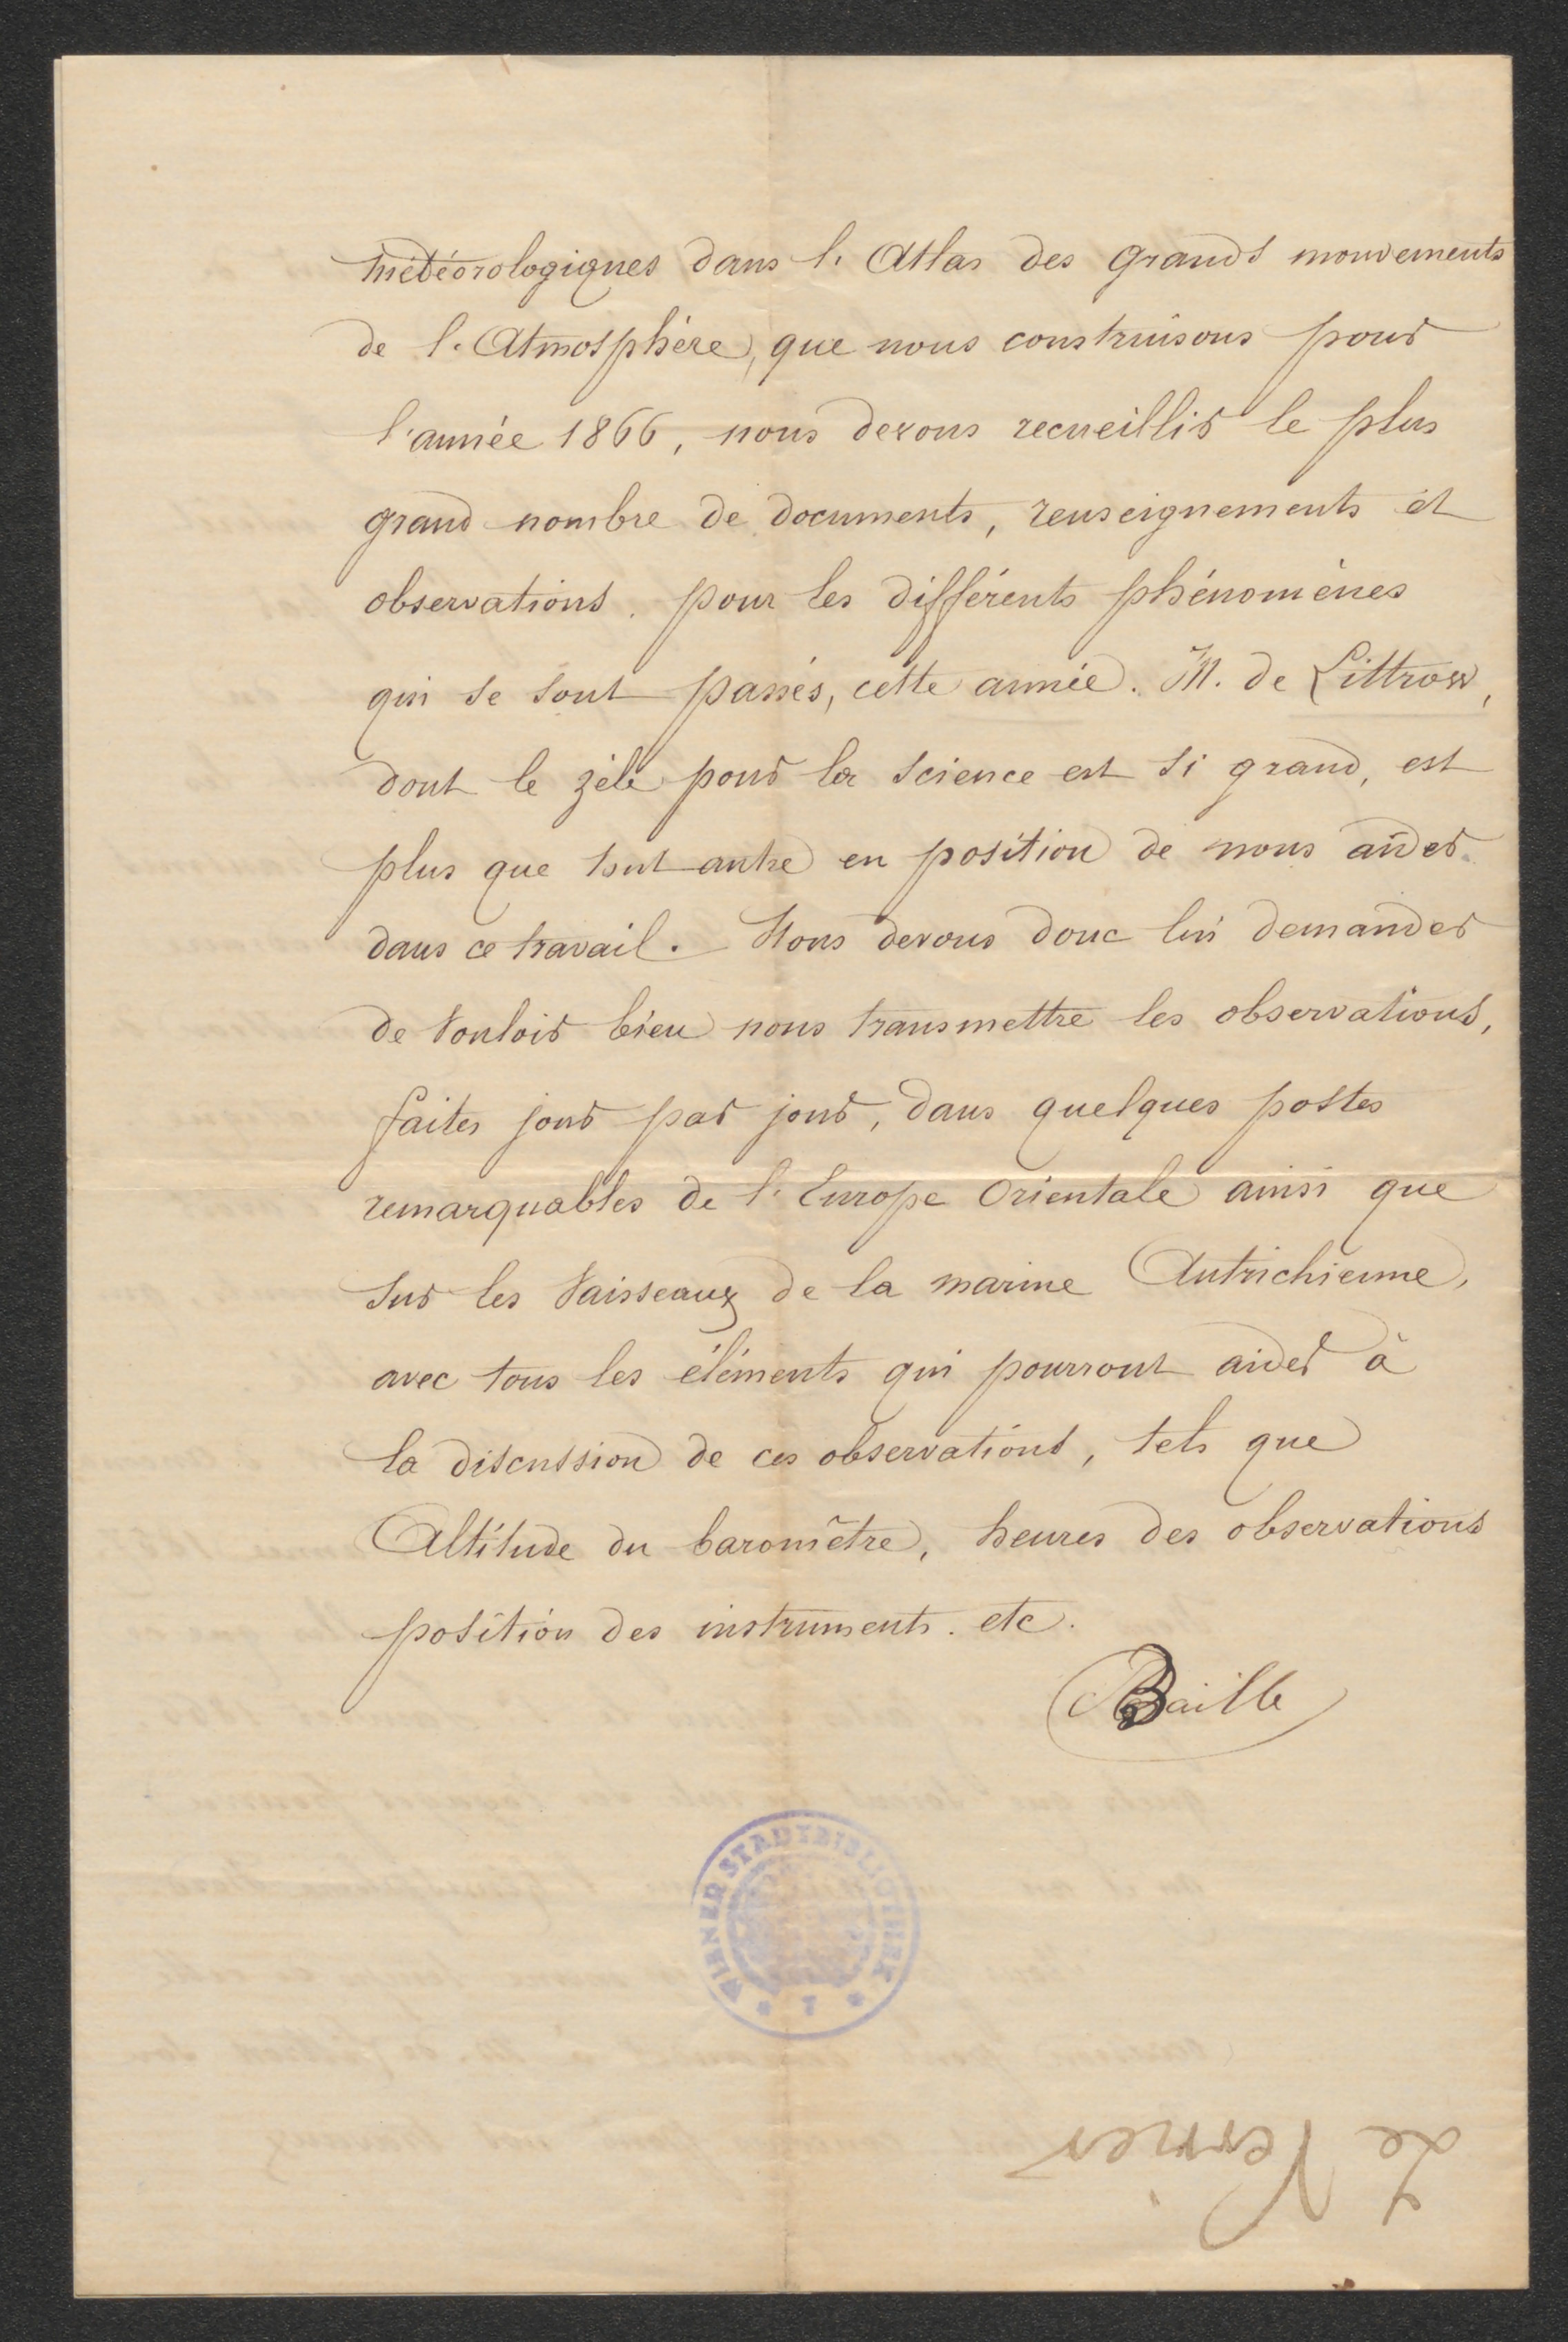 météorologiques dans l'Atlas des grands mouvements
de l'Atmosphère, que nous construisons pour
l'année 1866, nous devons recueillir le plus
grand nombre de documents, renseignements et
observations. pour les différents phénomènes
qui se sont passés, cette année. M. de Littrow,
dont le zèle pour la science est si grand, est
plus que tout autre en position de nous aider.
dans ce travail. Nous devons donc lui demander
de vouloir bien nous transmettre les observations,
faites jour par jour, dans quelques postes
remarquables de l'Europe Orientale ainsi que
sur les vaisseaux de la marine Autrichienne,
avec tous les éléments qui pourront aider à
la discussion de ces observations, tels que
Altitude du baromètre, heures des observations
position des instruments. etc.
Baille
WIENER STADTBIBLIOTHEK
Le Verrier